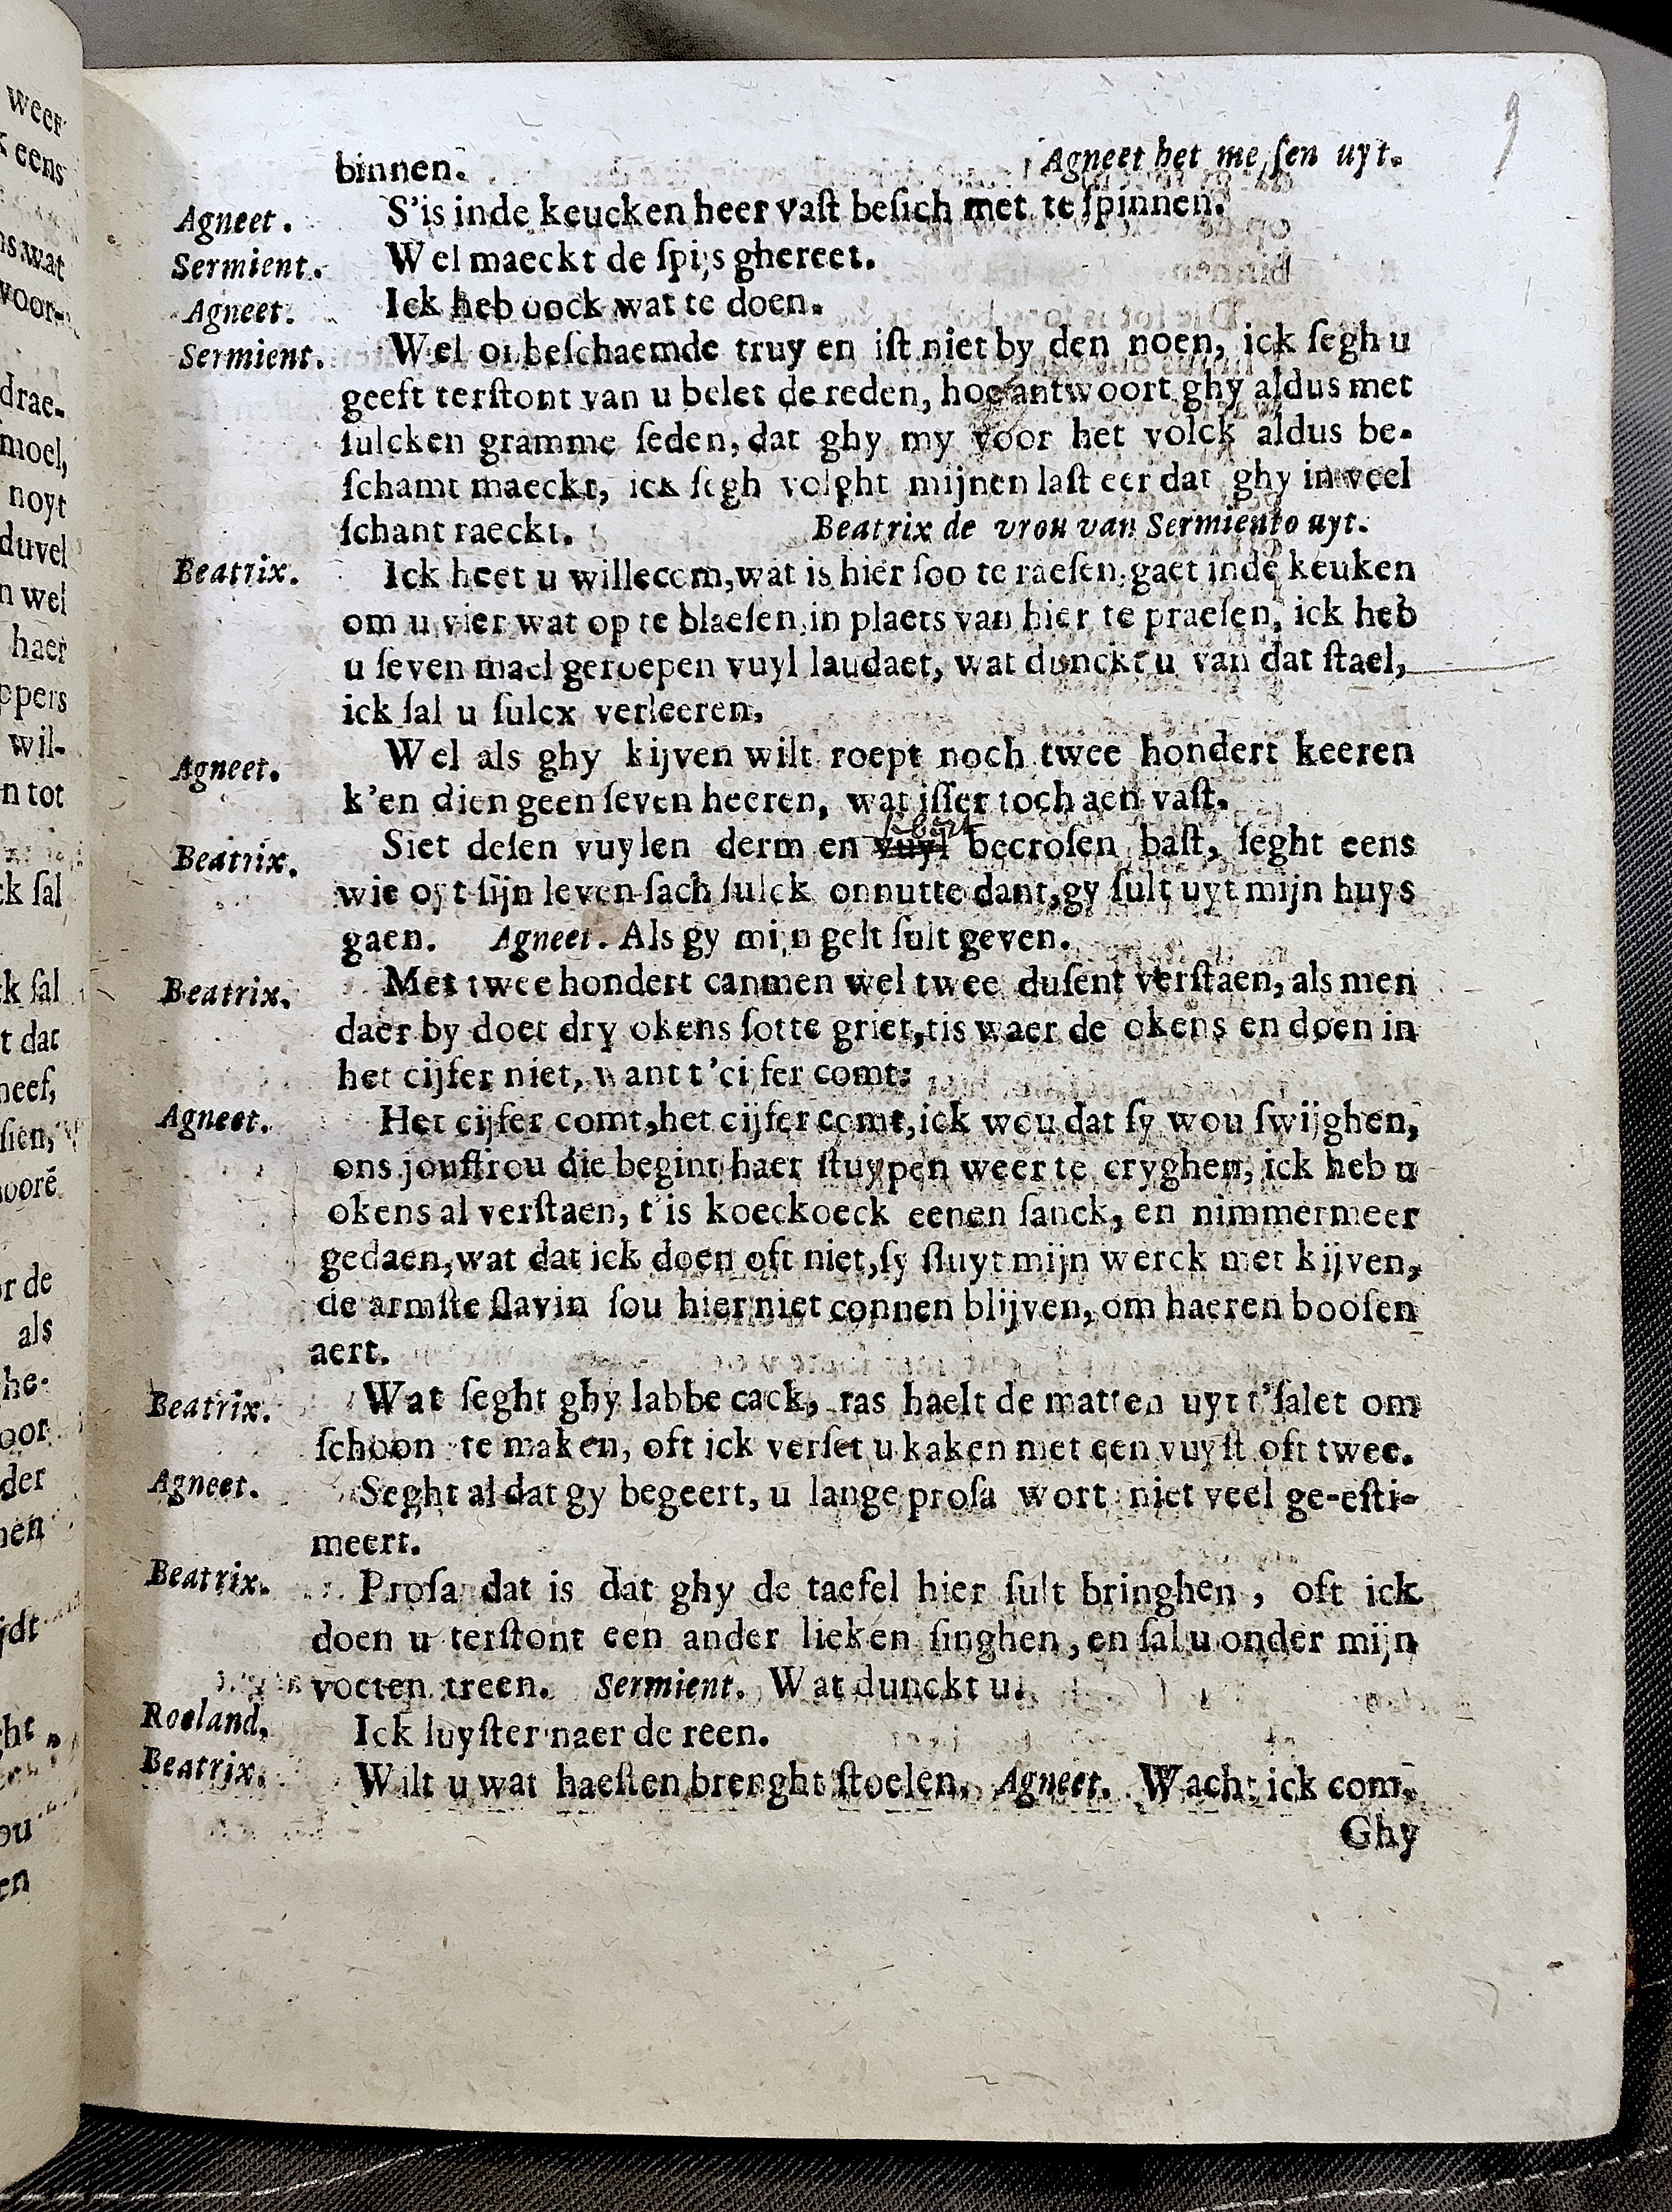 9
binnen. Agneet het meyſen uyt.
Agneet. S'is inde keucken heer vaſt beſich met te ſpinnen.
Sermient. Wel maeckt de ſpijs ghereet.
Agneet. Ick heb oock wat te doen.
Sermient. Wel onbeſchaemde truy en iſt niet by den noen, ick ſegh u
geeft terſtont van u belet de reden, hoe antwoort ghy aldus met
ſulcken gramme ſeden, dat ghy my voor het volck aldus be-
ſchamt maeckt, ick ſegh volght mijnen laſt eer dat ghy in veel
ſchant raeckt. Beatrix de vrou van Sermiento uyt.
Beatrix. Ick heet u willecom, wat is hier ſoo te raeſen, gaet inde keuken
om u vier wat op te blaeſen, in plaets van hier te praeſen, ick heb
u ſeven mael geroepen vuyl laudaet, wat dunckt u van dat ſtael,
ick ſal u ſulcx verleeren.
Agneet. Wel als ghy kijven wilt roept noch twee hondert keeren
k'en dien geen ſeven heeren, wat iſſer toch aen vaſt.
Beatrix. Siet deſen vuylen derm en vuyl becroſen baſt, ſeght eens
wie oyt ſijn leven ſach ſulck onnutte dant, gy ſult uyt mijn huys
gaen. Agneet. Als gy mijn gelt ſult geven.
Beatrix. Met twee hondert canmen wel twee duſent verſtaen, als men
daer by doet dry okens ſotte griet, tis waer de okens en doen in
het cijfer niet, want t'cijfer comt:
Agneet. Het cijfer comt, het cijfer comt, ick wou dat ſy wou ſwijghen,
ons jouffrou die begint haer ſtuypen weer te cryghen, ick heb u
okens al verſtaen, t'is koeckoeck eenen ſanck, en nimmermeer
gedaen, wat dat ick doen oft niet, ſy ſluyt mijn werck met kijven,
de armſte ſlavin ſou hier niet connen blijven, om haeren booſen
aert.
Beatrix. Wat ſeght ghy labbe cack, ras haelt de matten uyt t'ſalet om
ſchoon te maken, oft ick verſet u kaken met een vuyſt oft twee.
Agneet. Seght al dat gy begeert, u lange proſa wort niet veel ge-eſti-
meert.
Beatrix. Proſa dat is dat ghy de taefel hier ſult bringhen, oft ick
doen u terſtont een ander lieken ſinghen, en ſal u onder mijn
voeten treen. Sermient. Wat dunckt u.
Roeland. Ick luyſter naer de reen.
Beatrix. Wilt u wat haeſten brenght ſtoelen. Agneet. Wacht ick com.
Ghy
weer
eens
wat
voor-
drae-
moel,
noyt
duvel
n wel
haer
ppers
wil-
n tot
ck ſal
k ſal
t dat
neef,
ſien,
r de
als
he-
oor
der
nen
jdt
ght
ou
en